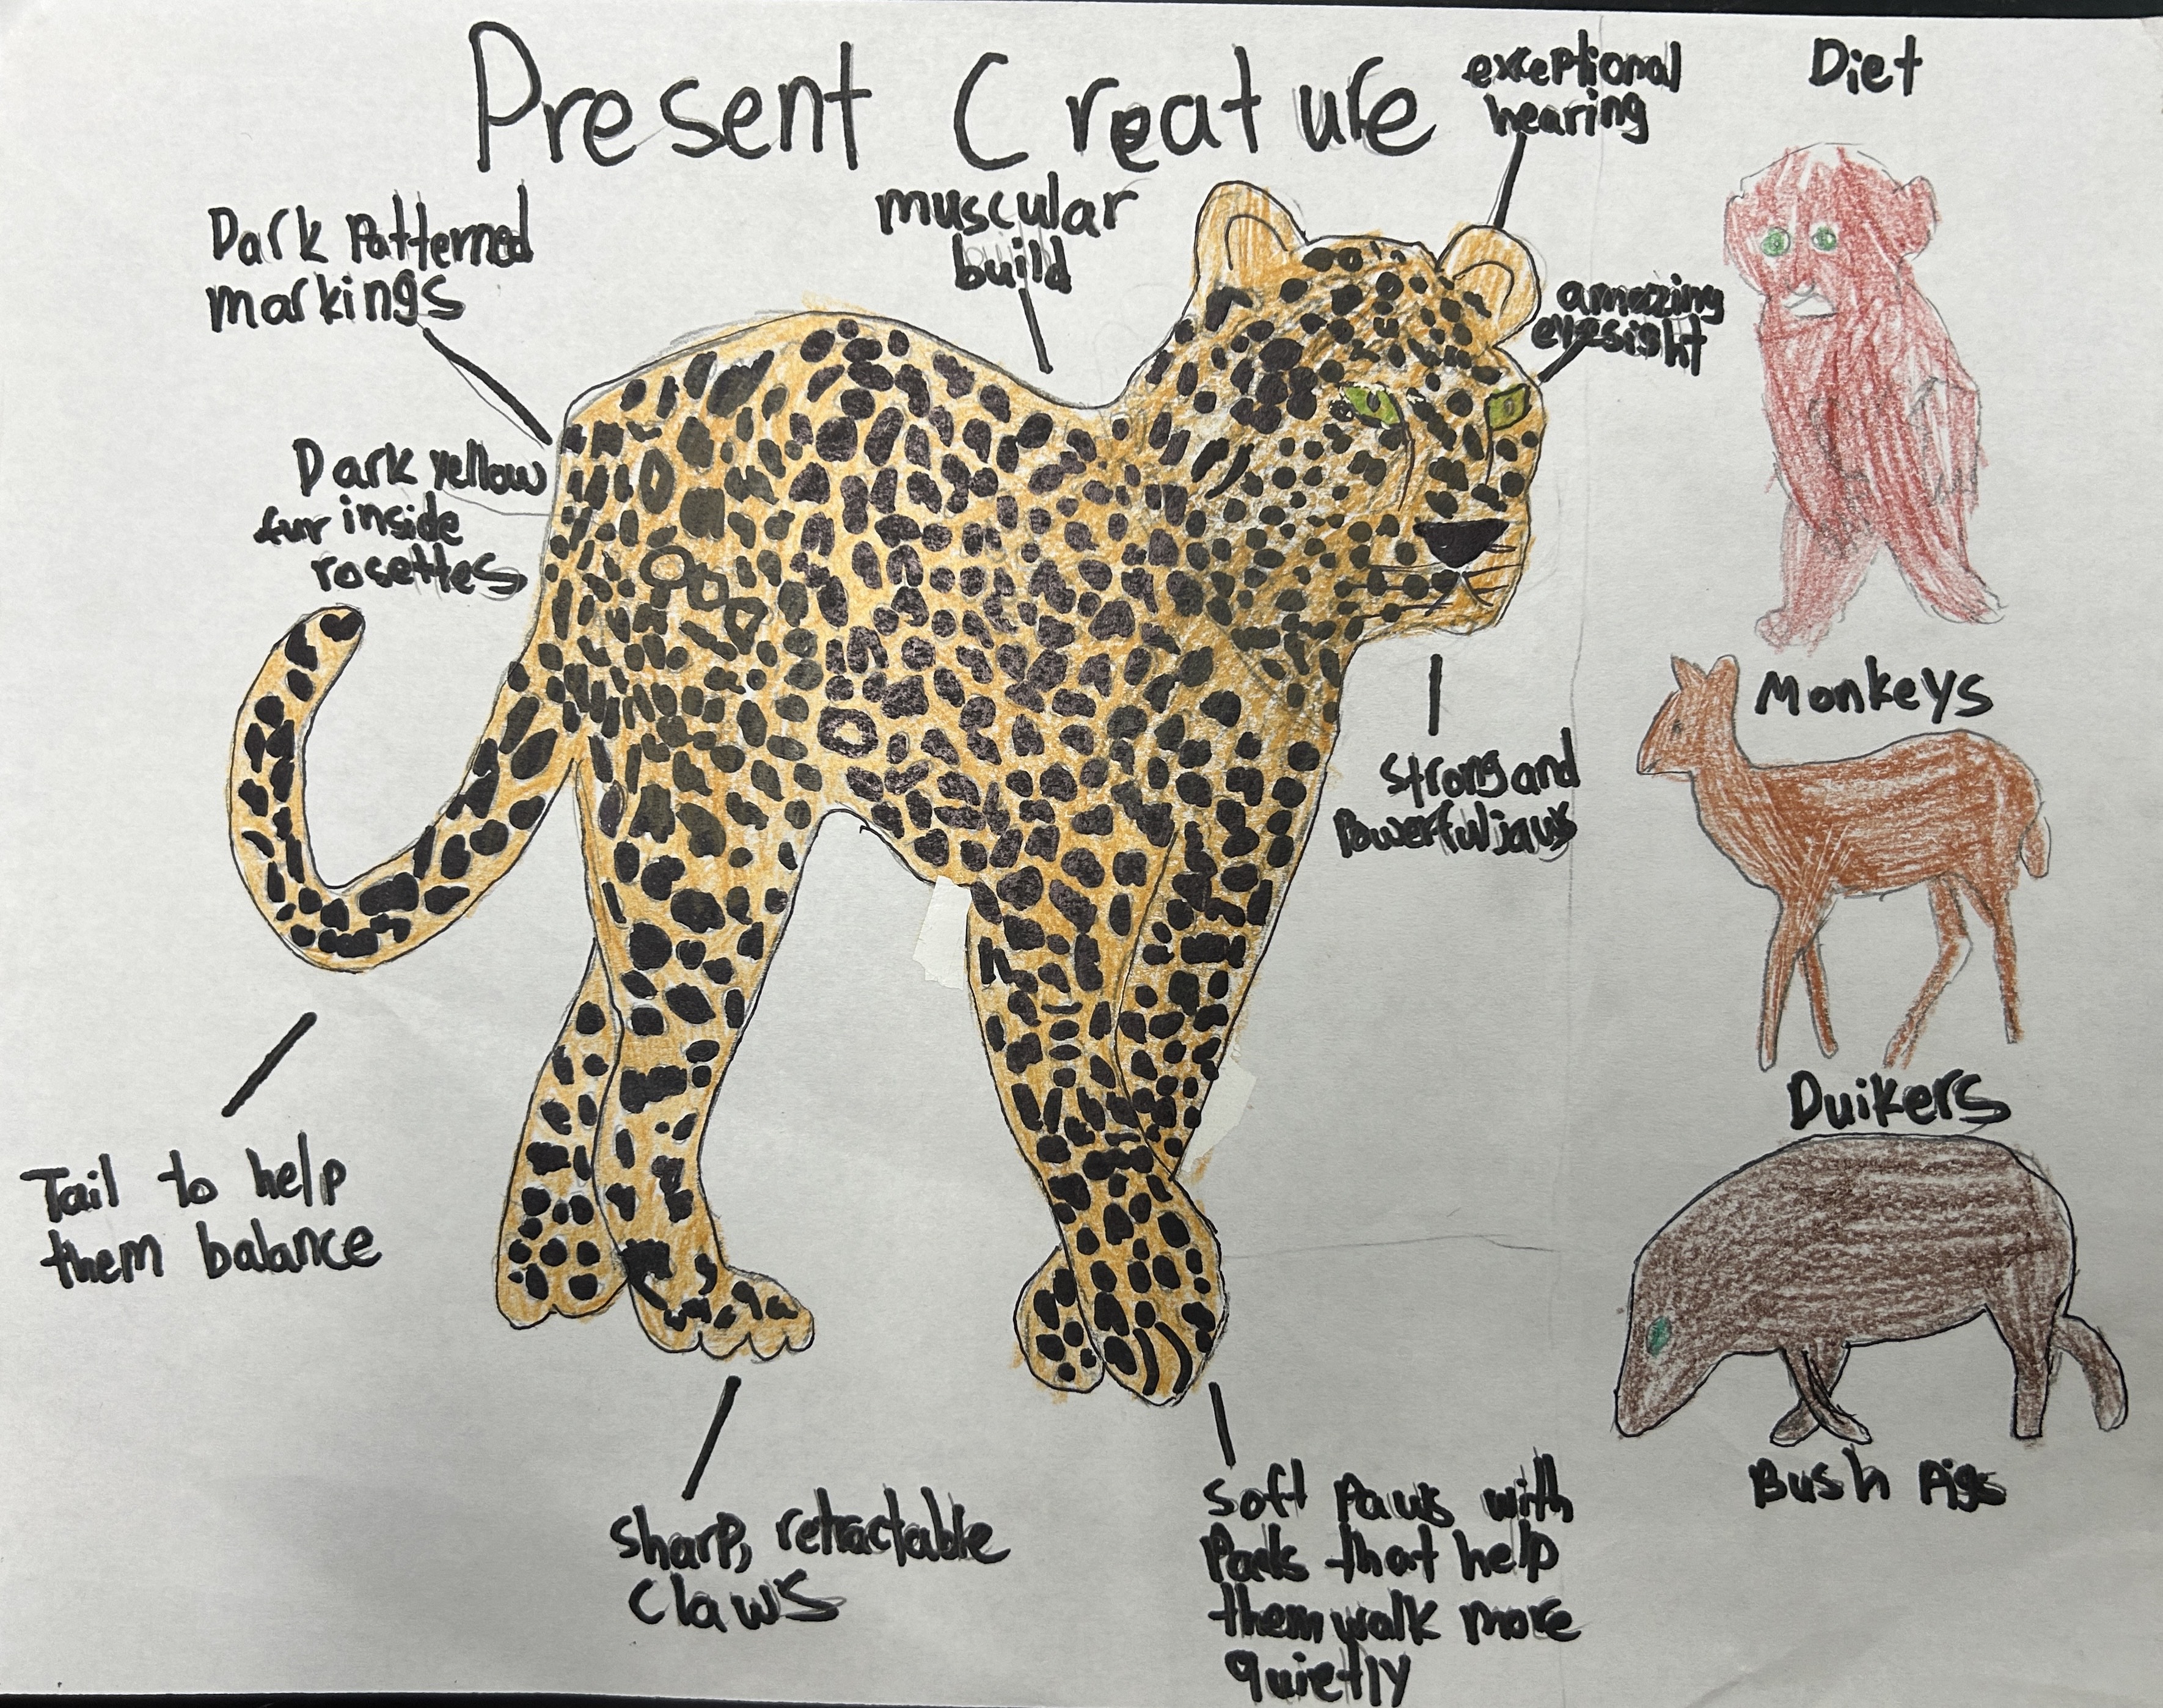 Present Creature
exceptional
hearing
Diet
Dark Patterned
markings
muscular
build
amazing
eyesight
Dark yellow
fur inside
rosettes
Monkeys
Strong and
Powerful jaws
Duikers
Tail to help
them balance
Bush Pigs
sharp, retractable
claws
Soft Paws with
Pads that help
them walk more
quietly